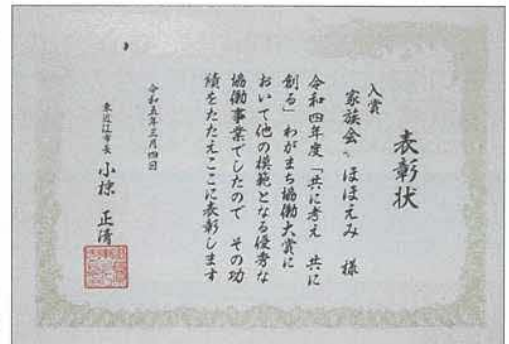 表彰状
入賞
家族会、ほほえみ 様
令和四年度「共に考え 共に
創る」わがまち協働大賞に
おいて他の模範となる優秀な
協働事業でしたので その功
績をたたえここに表彰します
令和五年三月四日
東近江市長 小椋 正清